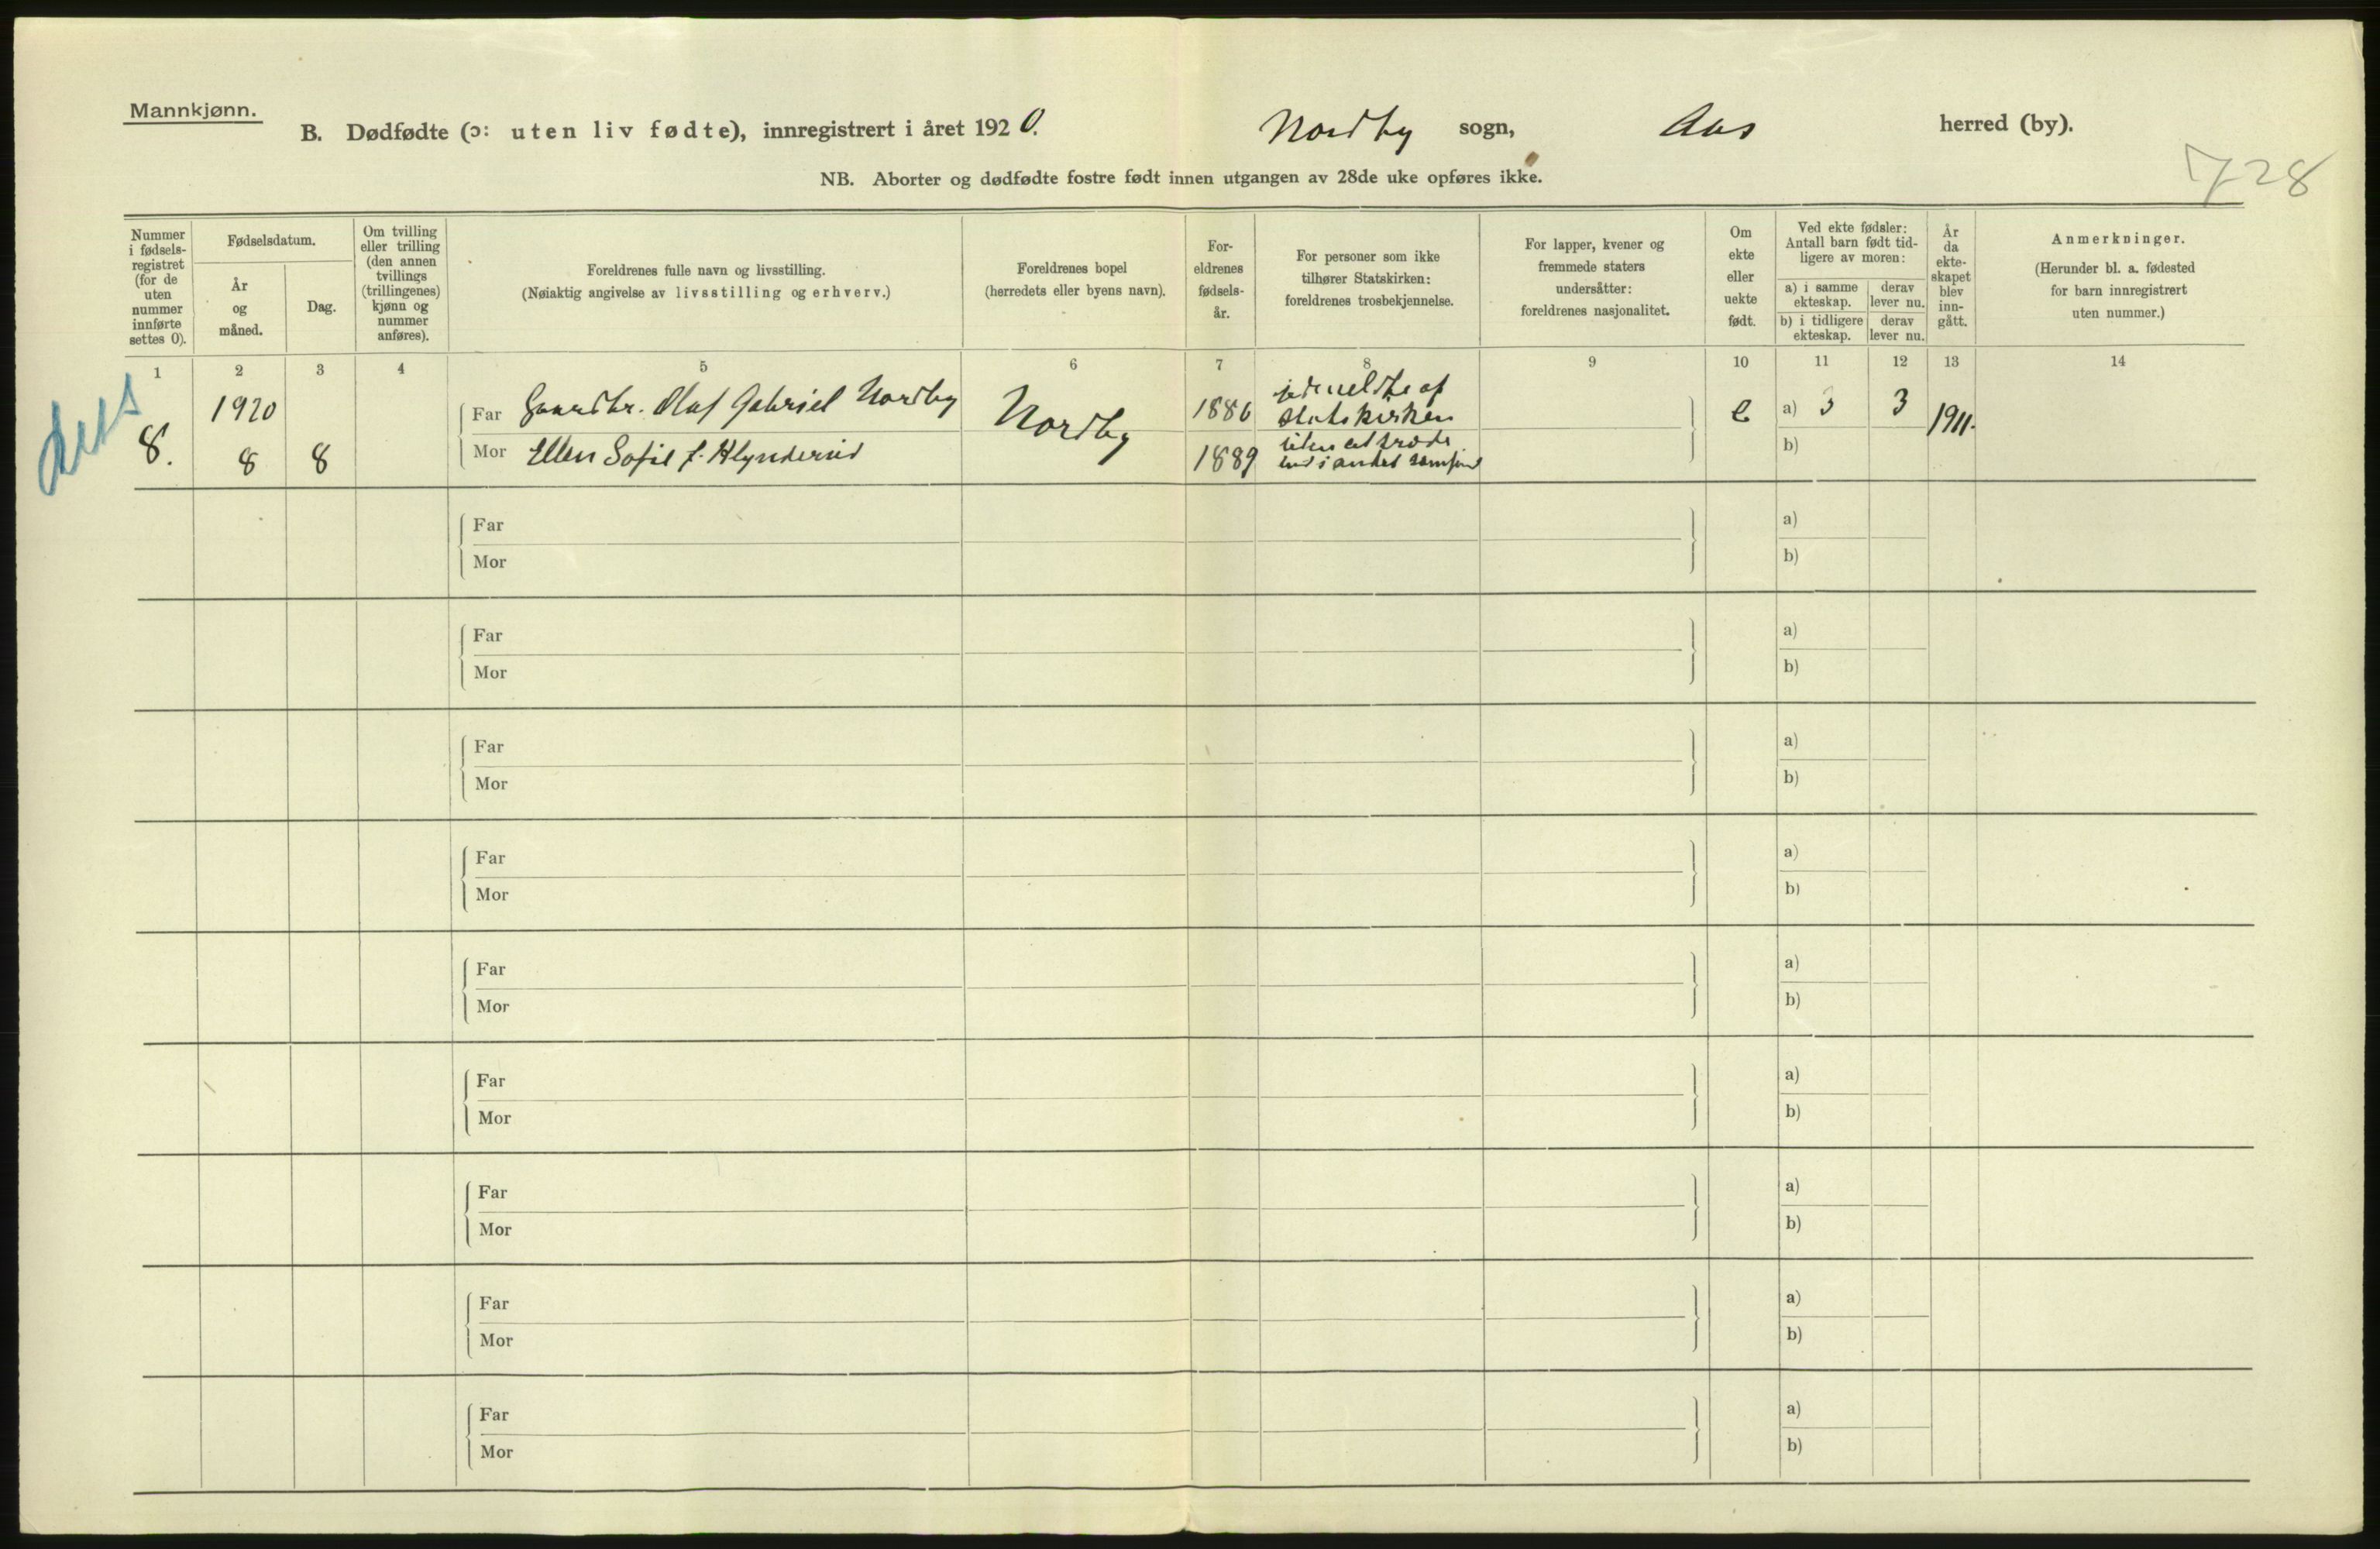 Mannkjønn.
B. Dødfødte (ɔ: uten liv fødte), innregistrert i året 1920. Nordby sogn, Aas herred (by).
NB. Aborter og dødfødte fostre født innen utgangen av 28de uke opføres ikke.
728
Nummer i fødsels-registret (for de uten nummer innførte settes 0).
Fødselsdatum.
År og måned.
Dag.
Om tvilling eller trilling (den annen tvillings (trillingenes) kjønn og nummer anføres).
Foreldrenes fulle navn og livsstilling.
(Nøiaktig angivelse av livsstilling og erhverv.)
Foreldrenes bopel
(herredets eller byens navn).
For-eldrenes fødsels-år.
For personer som ikke tilhører Statskirken: foreldrenes trosbekjennelse.
For lapper, kvener og fremmede staters undersåtter: foreldrenes nasjonalitet.
Om ekte eller uekte født.
Ved ekte fødsler: Antall barn født tid-ligere av moren:
a) i samme ekteskap.
derav lever nu.
b) i tidligere ekteskap.
derav lever nu.
År da ekte-skapet blev inn-gått.
Anmerkninger.
(Herunder bl. a. fødested for barn innregistrert uten nummer.)
1 2 3 4 5 6 7 8 9 10 11 12 13 14
8. 1920 8 8
Far Gaardbr. Olaf Gabriel Nordby Nordby 1886
Mor Ellen Sofie f. 1889
udmeldte af
Statskirken
uten at træde
ind i andet samfund
e a) 3 3 1911.
b)
Far a)
Mor b)
Far a)
Mor b)
Far a)
Mor b)
Far a)
Mor b)
Far a)
Mor b)
Far a)
Mor b)
Far a)
Mor b)
Far a)
Mor b)
Far a)
Mor b)